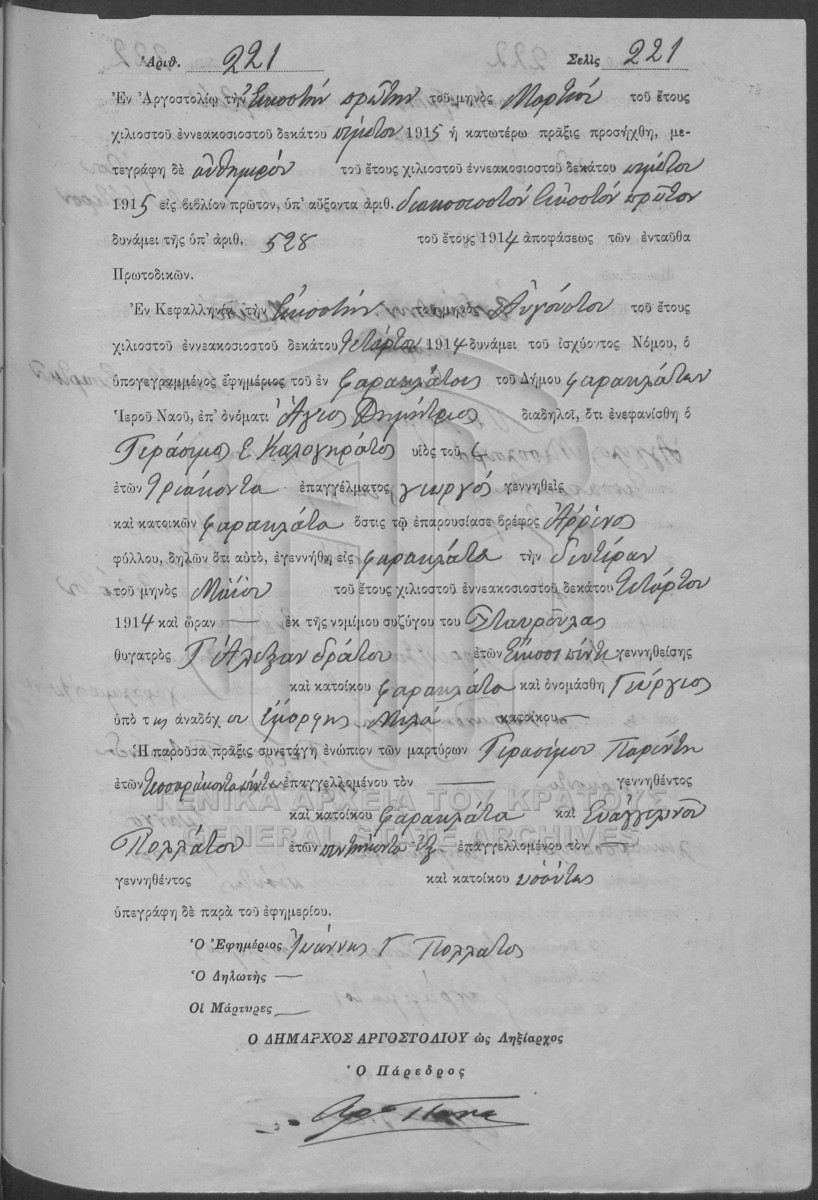 Ἀριθ. 221 Σελὶς 221
Ἐν Ἀργοστολίῳ τὴν Εἰκοστὴν πρώτην τοῦ μηνὸς Μαρτίου τοῦ ἔτους
χιλιοστοῦ ἐννεακοσιοστοῦ δεκάτου πέμπτου 1915 ἡ κατωτέρω πρᾶξις προσήχθη, με-
τεγράφη δὲ αὐθημερὸν τοῦ ἔτους χιλιοστοῦ ἐννεακοσιοστοῦ δεκάτου πέμπτου
1915 εἰς βιβλίον πρῶτον, ὑπ' αὔξοντα ἀριθ. διακοσιοστὸν εἰκοστὸν πρῶτον
δυνάμει τῆς ὑπ' ἀριθ. 528 τοῦ ἔτους 1914 ἀποφάσεως τῶν ἐνταῦθα
Πρωτοδικῶν.
Ἐν Κεφαλληνίᾳ τὴν Εἰκοστὴν τοῦ μηνὸς Αὐγούστου τοῦ ἔτους
χιλιοστοῦ ἐννεακοσιοστοῦ δεκάτου τετάρτου 1914 δυνάμει τοῦ ἰσχύοντος Νόμου, ὁ
ὑπογεγραμμένος ἐφημέριος τοῦ ἐν Φαρακλάτοις τοῦ Δήμου Φαρακλάτων
Ἱεροῦ Ναοῦ, ἐπ' ὀνόματι Ἅγιος Δημήτριος διαδηλοῖ, ὅτι ἐνεφανίσθη ὁ
Γεράσιμος Ε Καλογηράτος υἱὸς τοῦ
ἐτῶν τριάκοντα ἐπαγγέλματος γεωργὸς γεννηθεὶς
καὶ κατοικῶν Φαρακλάτα ὅστις τῷ ἐπαρουσίασε βρέφος Ἄρρενος
φύλλου, δηλῶν ὅτι αὐτὸ, ἐγεννήθη εἰς Φαρακλάτα τὴν δευτέραν
τοῦ μηνὸς Μαΐου τοῦ ἔτους χιλιοστοῦ ἐννεακοσιοστοῦ δεκάτου τετάρτου
1914 καὶ ὥραν — ἐκ τῆς νομίμου συζύγου του Σταυρούλας
θυγατρὸς Γ Ἀλεξανδράτου ἐτῶν Εἴκοσι πέντε γεννηθείσης
καὶ κατοίκου Φαρακλάτα καὶ ὀνομάσθη Γεώργιος
ὑπὸ της ἀναδόχου Εμορφης Μηλά κατοίκου —
Ἡ παροῦσα πρᾶξις συνετάγη ἐνώπιον τῶν μαρτύρων Γερασίμου Παρέντη
ἐτῶν τεσσαράκοντα πέντε ἐπαγγελλομένου τὸν — γεννηθέντος
καὶ κατοίκου Φαρακλάτα καὶ Εὐαγγελινοῦ
Πολλάτου ἐτῶν πεντήκοντα ἓξ ἐπαγγελλομένου τὸν —
γεννηθέντος καὶ κατοίκου
ὑπεγράφη δὲ παρὰ τοῦ ἐφημερίου.
Ὁ Ἐφημέριος Ἰωάννης Γ Πολλατος
Ὁ Δηλωτὴς —
Οἱ Μάρτυρες —
Ο ΔΗΜΑΡΧΟΣ ΑΡΓΟΣΤΟΛΙΟΥ ὡς Ληξίαρχος
Ὁ Πάρεδρος
ΓΕΝΙΚΑ ΑΡΧΕΙΑ ΤΟΥ ΚΡΑΤΟΥΣ
GENERAL STATE ARCHIVES